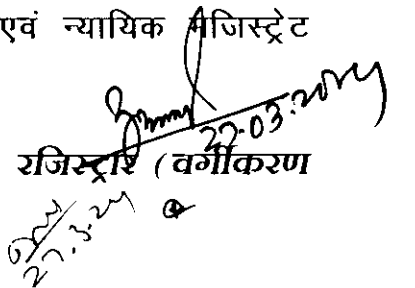 एवं न्यायिक मजिस्ट्रेट
27.03.2024
रजिस्ट्रार (वर्गीकरण
27.3.24